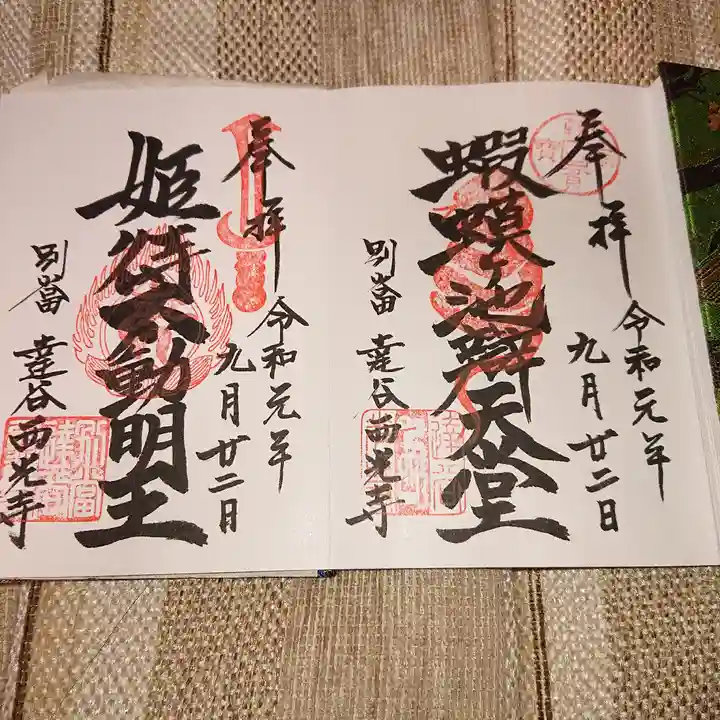 奉拝
令和元年
九月廿二日
蝦蟆ヶ池辯天堂
別當
達谷西光寺
奉拝
令和元年
九月廿二日
姫待不動明王
別當
達谷西光寺